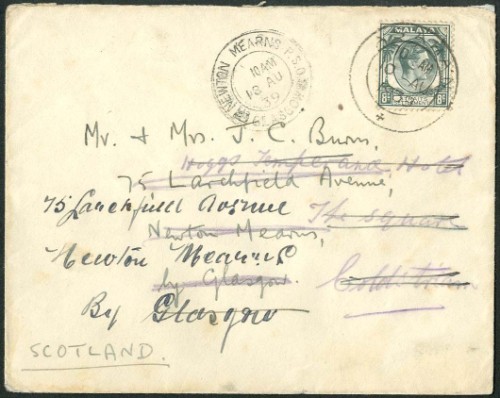 NEWTON MEARNS P.S.O.
10 AM
18 AU
39
GLASGOW
MALAYA
8c 8c
Mr. & Mrs. J. C. Burns,
Hoggs Temperance Hotel
75 Larchfield Avenue,
75 Larchfield Avenue The Square
Newton Mearns,
Newton Mearns
by Glasgow. Coldstream
By Glasgow
SCOTLAND.